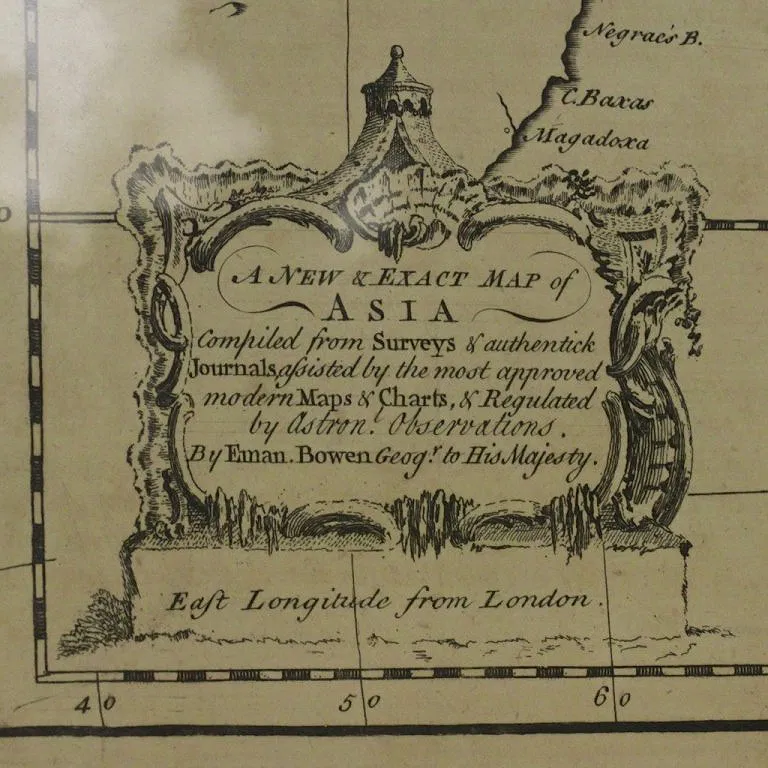 Negrae's B.
C. Baxas
Magadoxa
0
A NEW & EXACT MAP of
ASIA
Compiled from Surveys & authentick
Journals, aſsisted by the most approved
modern Maps & Charts, & Regulated
by Astron.l Observations.
By Eman. Bowen Geog.r to His Majesty.
Eaſt Longitude from London.
40 50 60